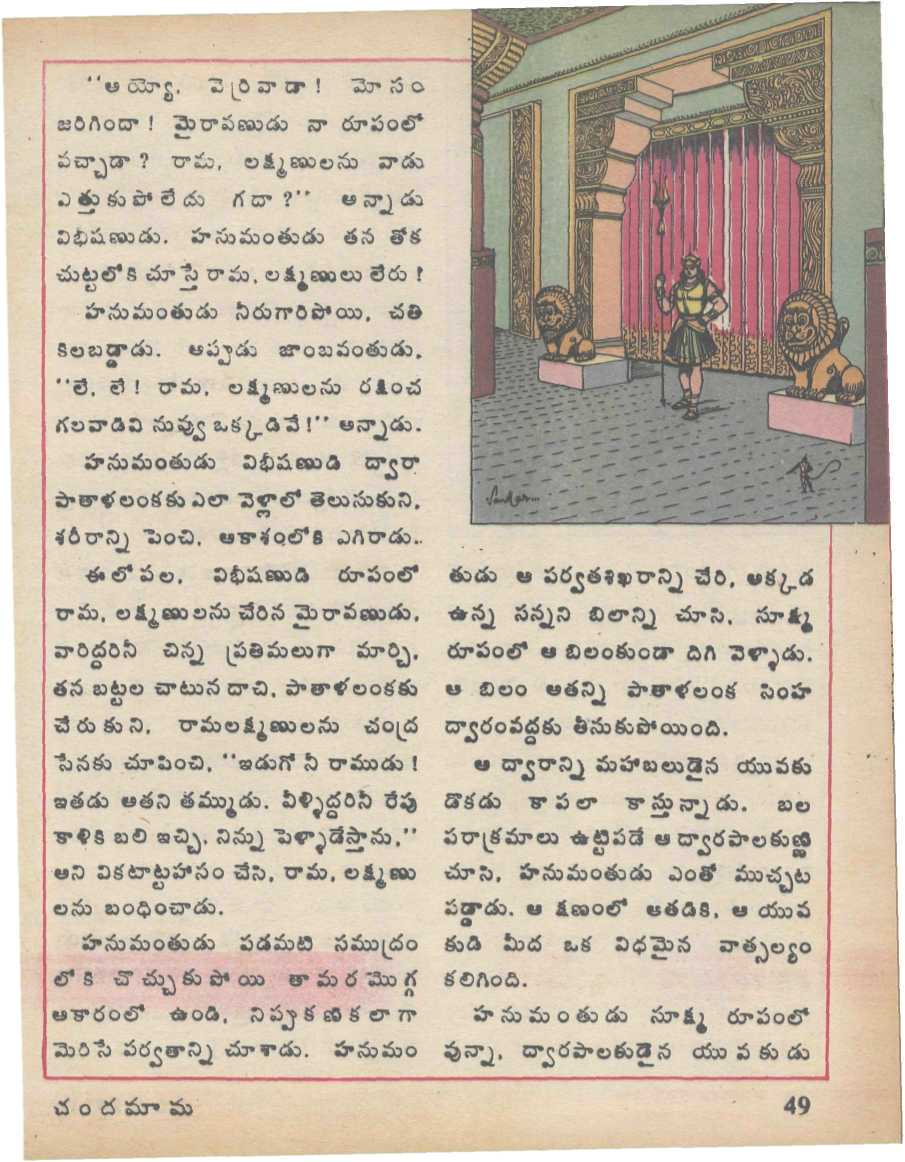 "అయ్యో, వెర్రివాడా! మోసం
జరిగిందా! మైరావణుడు నా రూపంలో
వచ్చాడా? రామ, లక్ష్మణులను వాడు
ఎత్తుకుపోలేదు గదా?" అన్నాడు
విభీషణుడు. హనుమంతుడు తన తోక
చుట్టలోకి చూస్తే రామ, లక్ష్మణులు లేరు!
హనుమంతుడు నీరుగారిపోయి, చతి
కిలబడ్డాడు. అప్పుడు జాంబవంతుడు,
"లే, లే! రామ, లక్ష్మణులను రక్షించ
గలవాడివి నువ్వు ఒక్కడివే!" అన్నాడు.
హనుమంతుడు విభీషణుడి ద్వారా
పాతాళలంకకు ఎలా వెళ్లాలో తెలుసుకుని,
శరీరాన్ని పెంచి, ఆకాశంలోకి ఎగిరాడు..
ఈలోపల, విభీషణుడి రూపంలో
రామ, లక్ష్మణులను చేరిన మైరావణుడు,
వారిద్దరినీ చిన్న ప్రతిమలుగా మార్చి,
తన బట్టల చాటున దాచి, పాతాళలంకకు
చేరుకుని, రామలక్ష్మణులను చంద్ర
సేనకు చూపించి, "ఇడుగో నీ రాముడు!
ఇతడు అతని తమ్ముడు. వీళ్ళిద్దరినీ రేపు
కాళికి బలి ఇచ్చి, నిన్ను పెళ్ళాడేస్తాను,"
అని వికటాట్టహాసం చేసి, రామ, లక్ష్మణు
లను బంధించాడు.
హనుమంతుడు పడమటి సముద్రం
లోకి చొచ్చుకుపోయి తామరమొగ్గ
ఆకారంలో ఉండి, నిప్పుకణికలాగా
మెరిసే పర్వతాన్ని చూశాడు. హనుమం
తుడు ఆ పర్వతశిఖరాన్ని చేరి, అక్కడ
ఉన్న సన్నని బిలాన్ని చూసి, సూక్ష్మ
రూపంలో ఆ బిలంకుండా దిగి వెళ్ళాడు.
ఆ బిలం అతన్ని పాతాళలంక సింహ
ద్వారంవద్దకు తీనుకుపోయింది.
ఆ ద్వారాన్ని మహాబలుడైన యువకు
డొకడు కాపలా కాస్తున్నాడు. బల
పరాక్రమాలు ఉట్టిపడే ఆ ద్వారపాలకుణ్ణి
చూసి, హనుమంతుడు ఎంతో ముచ్చట
పడ్డాడు. ఆ క్షణంలో అతడికి, ఆ యువ
కుడి మీద ఒక విధమైన వాత్సల్యం
కలిగింది.
హనుమంతుడు సూక్ష్మ రూపంలో
వున్నా, ద్వారపాలకుడైన యువకుడు
చందమామ
49